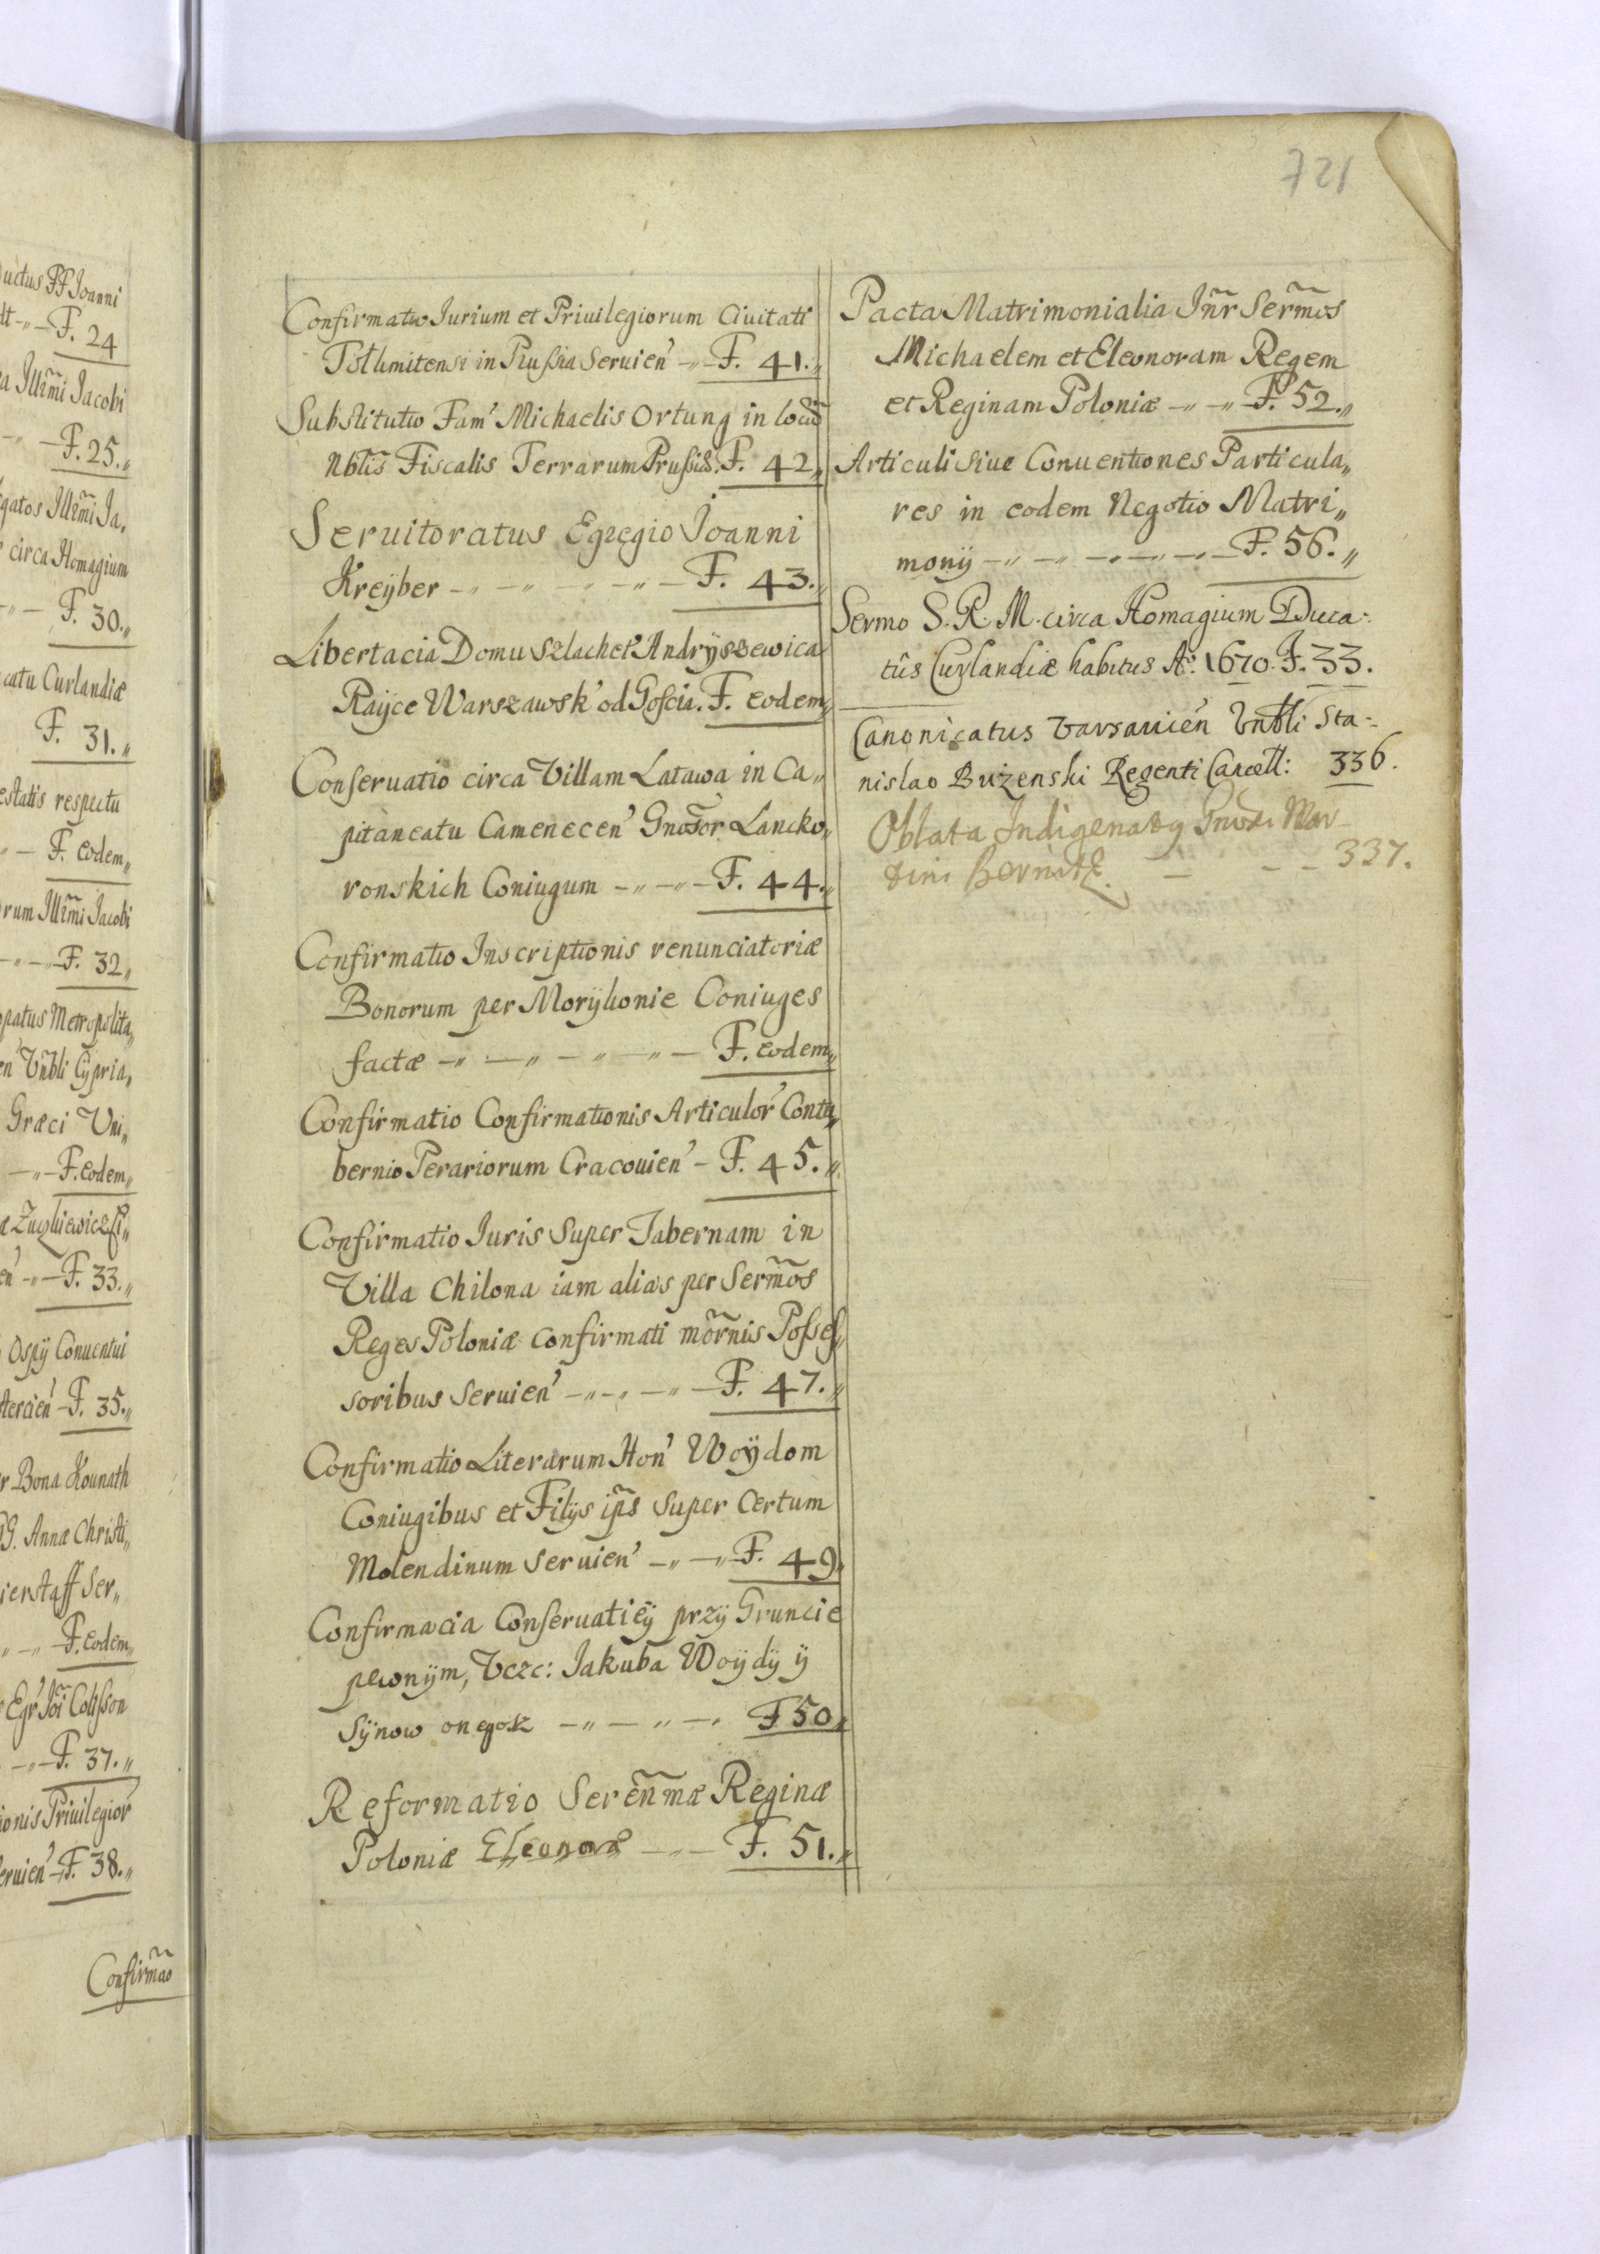 uctus PP Joanni
tt -„- F. 24
a Jllm̃i Jacobi
-„ - F. 25.„
gatos Jllm̃i Ja„
circa Homagium
-„- F. 30.„
catu Curlandiæ
F. 31.„
estatis respectu
„ - F. eodem„
rum Jllm̃i Jacobi
-„-„ F. 32„
patus Metropolita„
en' Vñbli Cypria„
Græci Vni„
-„- F. eodem„
F. 33.„
Ospÿ Conuentui
stercien' F. 35.„
r Bona Kounath
G. Annæ Christi„
ierstaff Ser„
„-„ F. eodem„
-„- F. 37.„
ionis Priuilegior'
eruien' F. 38.„
Confirmão
721
Confirmatio Iurium et Priuilegiorum Ciuitati
Tolkmitensi in Prußia Seruien' -„- F. 41.„
Substitutio Fam' Michaelis Ortung in locũ
Nblis Fiscalis Terrarum Prußiæ. F. 42„
Seruitoratus Egregio Joanni
Kreÿber -„ -„ - -„ - F. 43.„
Libertacia Domu Szlachet' Andrÿszewica
Raÿce Warszawsk' od Goscia. F. eodem„
Conseruatio circa Villam Latawa in Ca„
pitaneatu Camenecen' Gnõsor Lancko„
ronskich Coniugum -„-„- F. 44.„
Confirmatio Inscriptionis renunciatoriæ
Bonorum per Morÿkonie Coniuges
factæ -„ -„ - „ -„ - F. eodem„
Confirmatio Confirmationis Articulor' Contu„
bernio Perariorum Cracouien' - F. 45.„
Confirmatio Iuris Super Tabernam in
Villa Chilona iam alias per Serm̃os
Reges Poloniæ confirmati mõrnis Posses„
soribus seruien' -„-„ -„- F. 47.„
Confirmatio Literarum Hon' Woÿdom
Coniugibus et Filÿs ip̃s super Certum
Molendinum seruien' -„ -„ F. 49„
Confirmacia Conseruatieÿ przÿ Gruncie
pewnÿm, Vczc: Jakuba Woÿdÿ ÿ
Sÿnow onegosz -„ - „ -„ F 50„
Reformatio Sereñmæ Reginæ
Poloniæ Eleonoræ -„- F. 51.„
Pacta Matrimonialia Iñr Serm̃os
Michaelem et Eleonoram Regem
et Reginam Poloniæ -„ -„ F. 52.„
Articuli siue Conuentiones Particula„
res in eodem Negotio Matri„
monÿ -„ -„ -„-„-„ F. 56.„
Sermo S. R. M. circa Homagium Duca-
tûs Curlandiæ habitus Aº: 1670. F. 33.
Canonicatus Varsauien' Vnbli Sta-
nislao Bużenski Regenti Cancell: 336.
Oblata Indigenatq Gnosi Mar-
tini - - - 337.